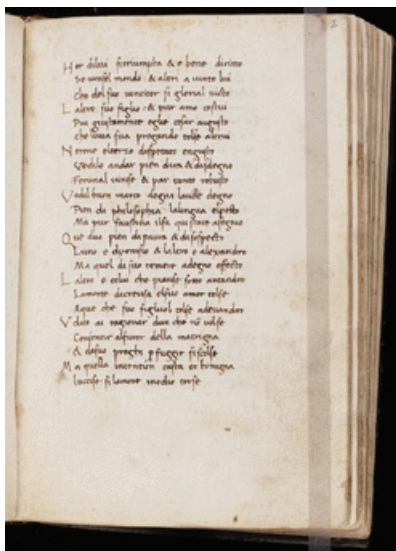 Hor dilui sitriumpha & e bene diricto
Se vinsel mondo & altri a vincto lui
Che del suo vincitor si glorial victo
Laltro suo figlio & pur amo costui
Piu giustamente eglie cesar augusto
Che liuia sua pregando tolse altrui
Nerone elterzo dispietato engiusto
Vedilo andar pien dira & disdegno
Feminal vinse & par tanto robusto
Vedil buon marco degna laude degno
Pien di philosophia lalingua elpecto
Ma pur faustina ilfa qui stare asegno
Que duo pien dipaura & disospecto
Luno e dyonisio & laltro e alexandro
Ma quel di suo temere adegno effecto
Laltro e colui che pianse socto antandro
Lamorte dicreusa elsuo amor tolse
Aque che suo figliuol tolse adeuandro
Vdito ai ragionar dun che nō volse
Consentire alfuror della matrigna
& dasuo preghi p fuggir sisciolse
Ma quella intention casta et benigna
luccise silamore inodio torse
2